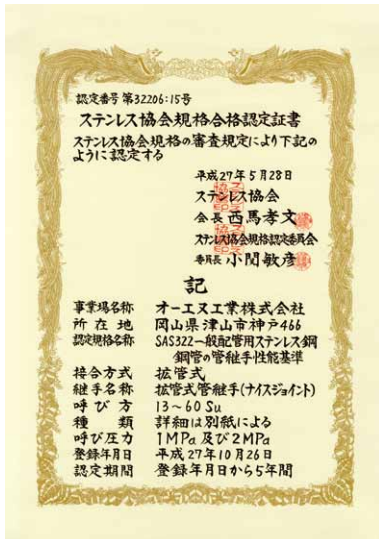 認定番号 第32206:15号
ステンレス協会規格合格認定証書
ステンレス協会規格の審査規定により下記の
ように認定する
平成27年5月28日
ステンレス協会
会長 西馬孝文
ステンレス協会規格認定委員会
委員長 小関敏彦
記
事業場名称 オーエヌ工業株式会社
所在地 岡山県津山市神戸466
認定規格名称 SAS322一般配管用ステンレス鋼
鋼管の管継手性能基準
接合方式 拡管式
継手名称 拡管式管継手(ナイスジョイント)
呼び方 13~60 Su
種類 詳細は別紙による
呼び圧力 1MPa 及び2MPa
登録年月日 平成27年10月26日
認定期間 登録年月日から5年間